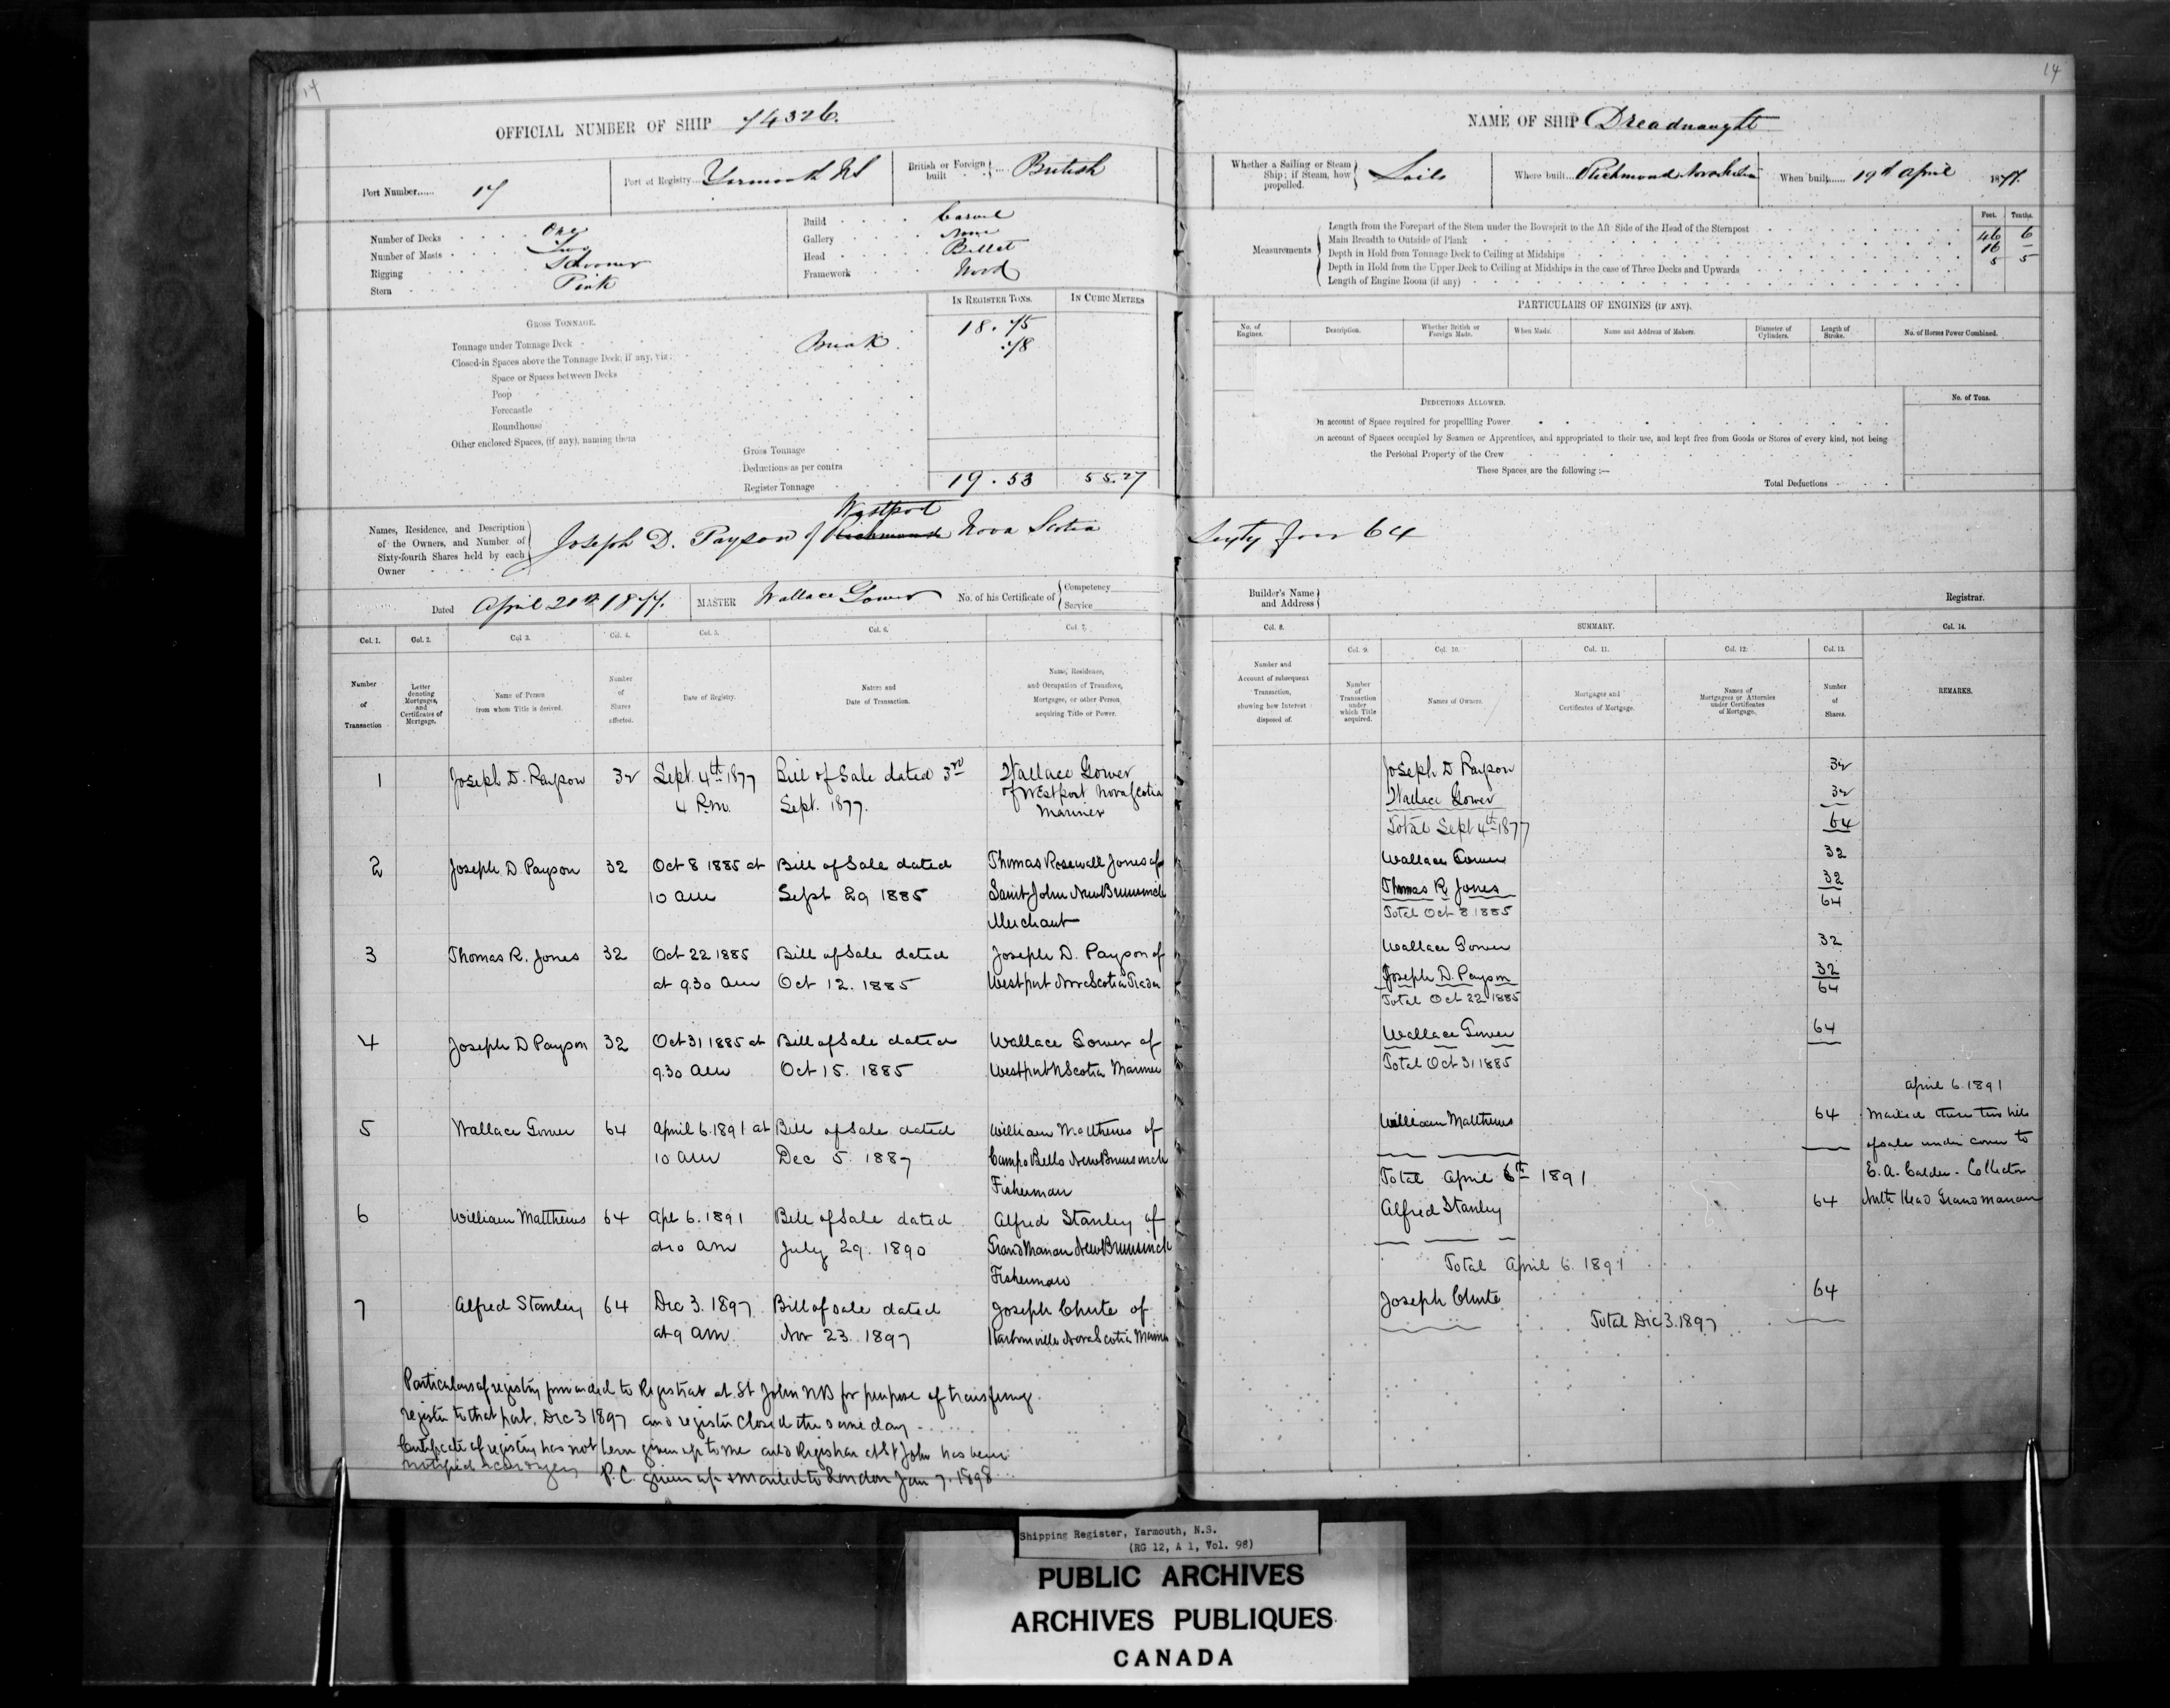 14
OFFICIAL NUMBER OF SHIP 74326.
Port Number...... 17
Port of Registry... Yarmouth NS
British or Foreign built ... British
Number of Decks One
Number of Masts Two
Rigging Schooner
Stern Pink
Build Carvel
Gallery None
Head Billet
Framework Wood
GROSS TONNAGE.
IN REGISTER TONS.
IN CUBIC METRES
Tonnage under Tonnage Deck 18.75
Closed-in Spaces above the Tonnage Deck, if any, viz: Break .78
Space or Spaces between Decks
Poop
Forecastle
Roundhouse
Other enclosed Spaces, (if any), naming them
Gross Tonnage
Deductions as per contra
Register Tonnage 19.53 55.27
Names, Residence, and Description
of the Owners, and Number of
Sixty-fourth Shares held by each
Owner
Westport
Joseph D. Payson of Richmond Nova Scotia
Dated April 21st 1877.
MASTER Wallace Gower
No. of his Certificate of Competency
Service
Col. 1. Col. 2. Col. 3. Col. 4. Col. 5. Col. 6. Col. 7.
Number of Transaction
Letter denoting Mortgages, and Certificates of Mortgage.
Name of Person from whom Title is derived.
Number of Shares affected.
Date of Registry.
Nature and Date of Transaction.
Name, Residence, and Occupation of Transferee, Mortgagee, or other Person acquiring Title or Power.
1 Joseph D. Payson 32 Sept. 4th 1877 Bill of Sale dated 3rd Wallace Gower
4 P.m. Sept. 1877. of Westport Nova Scotia
Mariner
2 Joseph D. Payson 32 Oct 8 1885 at Bill of Sale dated Thomas Rosewall Jones of
10 am Sept 29 1885 Saint John New Brunswick
Merchant
3 Thomas R. Jones 32 Oct 22 1885 Bill of Sale dated Joseph D. Payson of
at 9.30 am Oct 12. 1885 Westport Nova Scotia Trader
4 Joseph D Payson 32 Oct 31 1885 at Bill of Sale dated Wallace Gower of
9.30 am Oct 15. 1885 Westport N Scotia Mariner
5 Wallace Gower 64 April 6. 1891 at Bill of Sale dated William Matthews of
10 am Dec 5. 1887 Campo Bello New Brunswick
Fisherman
6 William Matthews 64 Apl 6. 1891 Bill of Sale dated Alfred Stanley of
at 10 am July 29. 1890 Grand Manan New Brunswick
Fisherman
7 Alfred Stanley 64 Dec 3. 1897 Bill of sale dated Joseph Chute of
at 9 am. Nov 23. 1897 Harbourville Nova Scotia Mariner
Particulars of registry forwarded to Registrar at St John NB for purpose of transferring
register to that port, Dec 3 1897 and register closed the same day.
Certificate of registry has not been given up to me and Registrar at St John has been
notified accordingly
P.C. given up & mailed to London Jan 7. 1898
14
NAME OF SHIP Dreadnaught
Whether a Sailing or Steam Ship; if Steam, how propelled. Sails
Where built... Richmond Nova Scotia
When built...... 19th April 1877.
Feet. Tenths.
Measurements
Length from the Forepart of the Stem under the Bowsprit to the Aft Side of the Head of the Sternpost 46 6
Main Breadth to Outside of Plank 16 –
Depth in Hold from Tonnage Deck to Ceiling at Midships 5 5
Depth in Hold from the Upper Deck to Ceiling at Midships in the case of Three Decks and Upwards
Length of Engine Room (if any)
PARTICULARS OF ENGINES (IF ANY).
No. of Engines.
Description.
Whether British or Foreign Made.
When Made.
Name and Address of Makers.
Diameter of Cylinders.
Length of Stroke.
No. of Horses Power Combined.
DEDUCTIONS ALLOWED.
No. of Tons.
On account of Space required for propelling Power
On account of Spaces occupied by Seamen or Apprentices, and appropriated to their use, and kept free from Goods or Stores of every kind, not being
the Perlobal Property of the Crew
These Spaces are the following :—
Total Deductions
Sixty four 64
Builder's Name and Address
Registrar.
Col. 8. SUMMARY. Col. 14.
Col. 9. Col. 10. Col. 11. Col. 12. Col. 13.
Number and Account of subsequent Transaction, showing how Interest disposed of.
Number of Transaction under which Title acquired.
Names of Owners.
Mortgages and Certificates of Mortgage.
Names of Mortgagees or Attornies under Certificates of Mortgage.
Number of Shares.
REMARKS.
Joseph D Payson 32
Wallace Gower 32
Total Sept 4th 1877 64
Wallace Gower 32
Thomas R Jones 32
Total Oct 8 1885 64
Wallace Gower 32
Joseph D. Payson 32
Total Oct 22 1885 64
Wallace Gower 64
Total Oct 31 1885
April 6. 1891
William Matthews 64 Mailed these two bills
of sale under cover to
Total April 6th 1891 E. A. Calder. Collector
Alfred Stanley 64 North Head Grand Manan
Total April 6. 1891
Joseph Chute 64
Total Dec 3. 1897
Shipping Register, Yarmouth, N.S.
(RG 12, A 1, Vol. 98)
PUBLIC ARCHIVES
ARCHIVES PUBLIQUES
CANADA